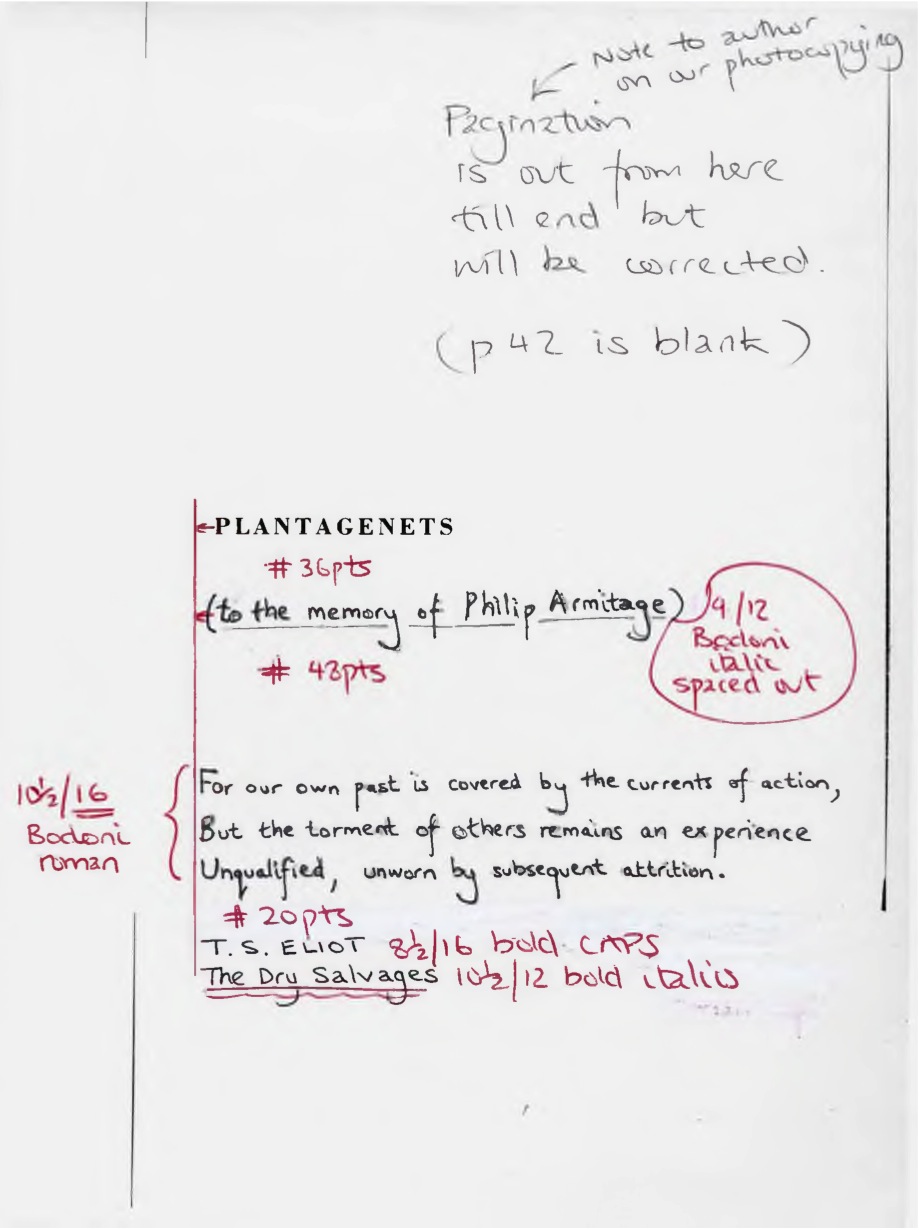 Note to author
on our photocopying
Pagination
is out from here
till end but
will be corrected.
(p 42 is blank)
PLANTAGENETS
# 36pts
(to the memory of Philip Armitage)
9/12
Bodoni
italic
spaced out
# 48pts
10½/16
Bodoni
roman
For our own past is covered by the currents of action,
But the torment of others remains an experience
Unqualified, unworn by subsequent attrition.
# 20pts
T. S. ELIOT 8½/16 bold CAPS
The Dry Salvages 10½/12 bold italics